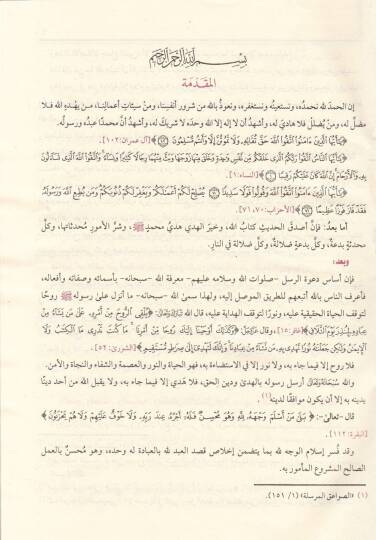 بسم الله الرحمن الرحيم
المقدمة
إن الحمدَ لله نحمدُه، ونستعينُه ونستغفره، ونعوذُ بالله من شرور أنفسِنا، ومنْ سيئاتِ أعمالِنا، منْ يهْدِهِ الله فلا
مضلَّ له، ومنْ يُضللْ فلا هاديَ له، وأشهدُ أن لا إله إلا الله وحدَه لا شريكَ له، وأشهدُ أنَّ محمدًا عبدُه ورسولُه.
﴿يَٰٓأَيُّهَا ٱلَّذِينَ ءَامَنُوا۟ ٱتَّقُوا۟ ٱللَّهَ حَقَّ تُقَاتِهِۦ وَلَا تَمُوتُنَّ إِلَّا وَأَنتُم مُّسْلِمُونَ ١٠٢﴾ [آل عمران: ١٠٢].
﴿يَٰٓأَيُّهَا ٱلنَّاسُ ٱتَّقُوا۟ رَبَّكُمُ ٱلَّذِى خَلَقَكُم مِّن نَّفْسٍ وَٰحِدَةٍ وَخَلَقَ مِنْهَا زَوْجَهَا وَبَثَّ مِنْهُمَا رِجَالًا كَثِيرًا وَنِسَآءً وَٱتَّقُوا۟ ٱللَّهَ ٱلَّذِى تَسَآءَلُونَ
بِهِۦ وَٱلْأَرْحَامَ إِنَّ ٱللَّهَ كَانَ عَلَيْكُمْ رَقِيبًا ١﴾ [النساء: ١].
﴿يَٰٓأَيُّهَا ٱلَّذِينَ ءَامَنُوا۟ ٱتَّقُوا۟ ٱللَّهَ وَقُولُوا۟ قَوْلًا سَدِيدًا ٧٠ يُصْلِحْ لَكُمْ أَعْمَٰلَكُمْ وَيَغْفِرْ لَكُمْ ذُنُوبَكُمْ وَمَن يُطِعِ ٱللَّهَ وَرَسُولَهُۥ
فَقَدْ فَازَ فَوْزًا عَظِيمًا ٧١﴾ [الأحزاب: ٧٠، ٧١].
أما بعدُ: فإنَّ أصدقَ الحديثِ كتابُ الله، وخيرَ الهدي هديُ محمدٍ ﷺ، وشرَّ الأمورِ مُحدثاتها، وكلَّ
محدثةٍ بدعةٌ، وكلَّ بدعةٍ ضلالةٌ، وكلَّ ضلالة في النارِ.
وبعد:
فإن أساس دعوة الرسل -صلوات الله وسلامه عليهم- معرفة الله -سبحانه- بأسمائه وصفاته وأفعاله،
فأعرف الناس بالله أتبعهم للطريق الموصل إليه، ولهذا سمىٰ الله -سبحانه- ما أنزل علىٰ رسوله ﷺ روحًا
لتوقف الحياة الحقيقية عليه، ونورًا لتوقف الهداية عليه، قال الله تَبَارَكَ وَتَعَالَىٰ: ﴿يُلْقِى ٱلرُّوحَ مِنْ أَمْرِهِۦ عَلَىٰ مَن يَشَآءُ مِنْ
عِبَادِهِۦ لِيُنذِرَ يَوْمَ ٱلتَّلَاقِ﴾ [غافر: ١٥]، وقال عَزَّوَجَلَّ: ﴿وَكَذَٰلِكَ أَوْحَيْنَآ إِلَيْكَ رُوحًا مِّنْ أَمْرِنَا مَا كُنتَ تَدْرِى مَا ٱلْكِتَٰبُ وَلَا
ٱلْإِيمَٰنُ وَلَٰكِن جَعَلْنَٰهُ نُورًا نَّهْدِى بِهِۦ مَن نَّشَآءُ مِنْ عِبَادِنَا وَإِنَّكَ لَتَهْدِىٓ إِلَىٰ صِرَٰطٍ مُّسْتَقِيمٍ﴾ [الشورىٰ: ٥٢].
فلا روح إلا فيما جاء به، ولا نور إلا في الاستضاءة به، فهو الحياة والنور والعصمة والشفاء والنجاة والأمن.
والله سُبْحَانَهُ وَتَعَالَىٰ أرسل رسوله بالهدىٰ ودين الحق، فلا هُدى إلا فيما جاء به، ولا يقبل الله من أحد دينًا
يدينه به إلا أن يكون موافقًا لدينه(١).
قال -تعالىٰ-: ﴿بَلَىٰ مَنْ أَسْلَمَ وَجْهَهُۥ لِلَّهِ وَهُوَ مُحْسِنٌ فَلَهُۥٓ أَجْرُهُۥ عِندَ رَبِّهِۦ وَلَا خَوْفٌ عَلَيْهِمْ وَلَا هُمْ يَحْزَنُونَ﴾
[البقرة: ١١٢].
وقد فُسر إسلام الوجه لله بما يتضمن إخلاص قصد العبد لله بالعبادة له وحده، وهو مُحسنٌ بالعمل
الصالح المشروع المأمور به.
(١) «الصواعق المرسلة» (١/ ١٥١).